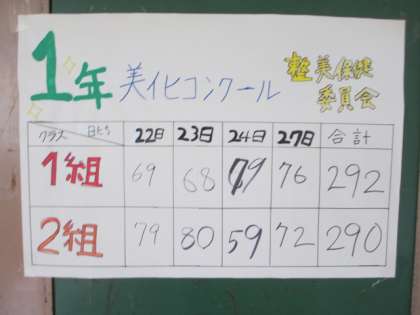 1年 美化コンクール 整美保健
委員会
クラス 日にち 22日 23日 24日 27日 合計
1組 69 68 79 76 292
2組 79 80 59 72 290